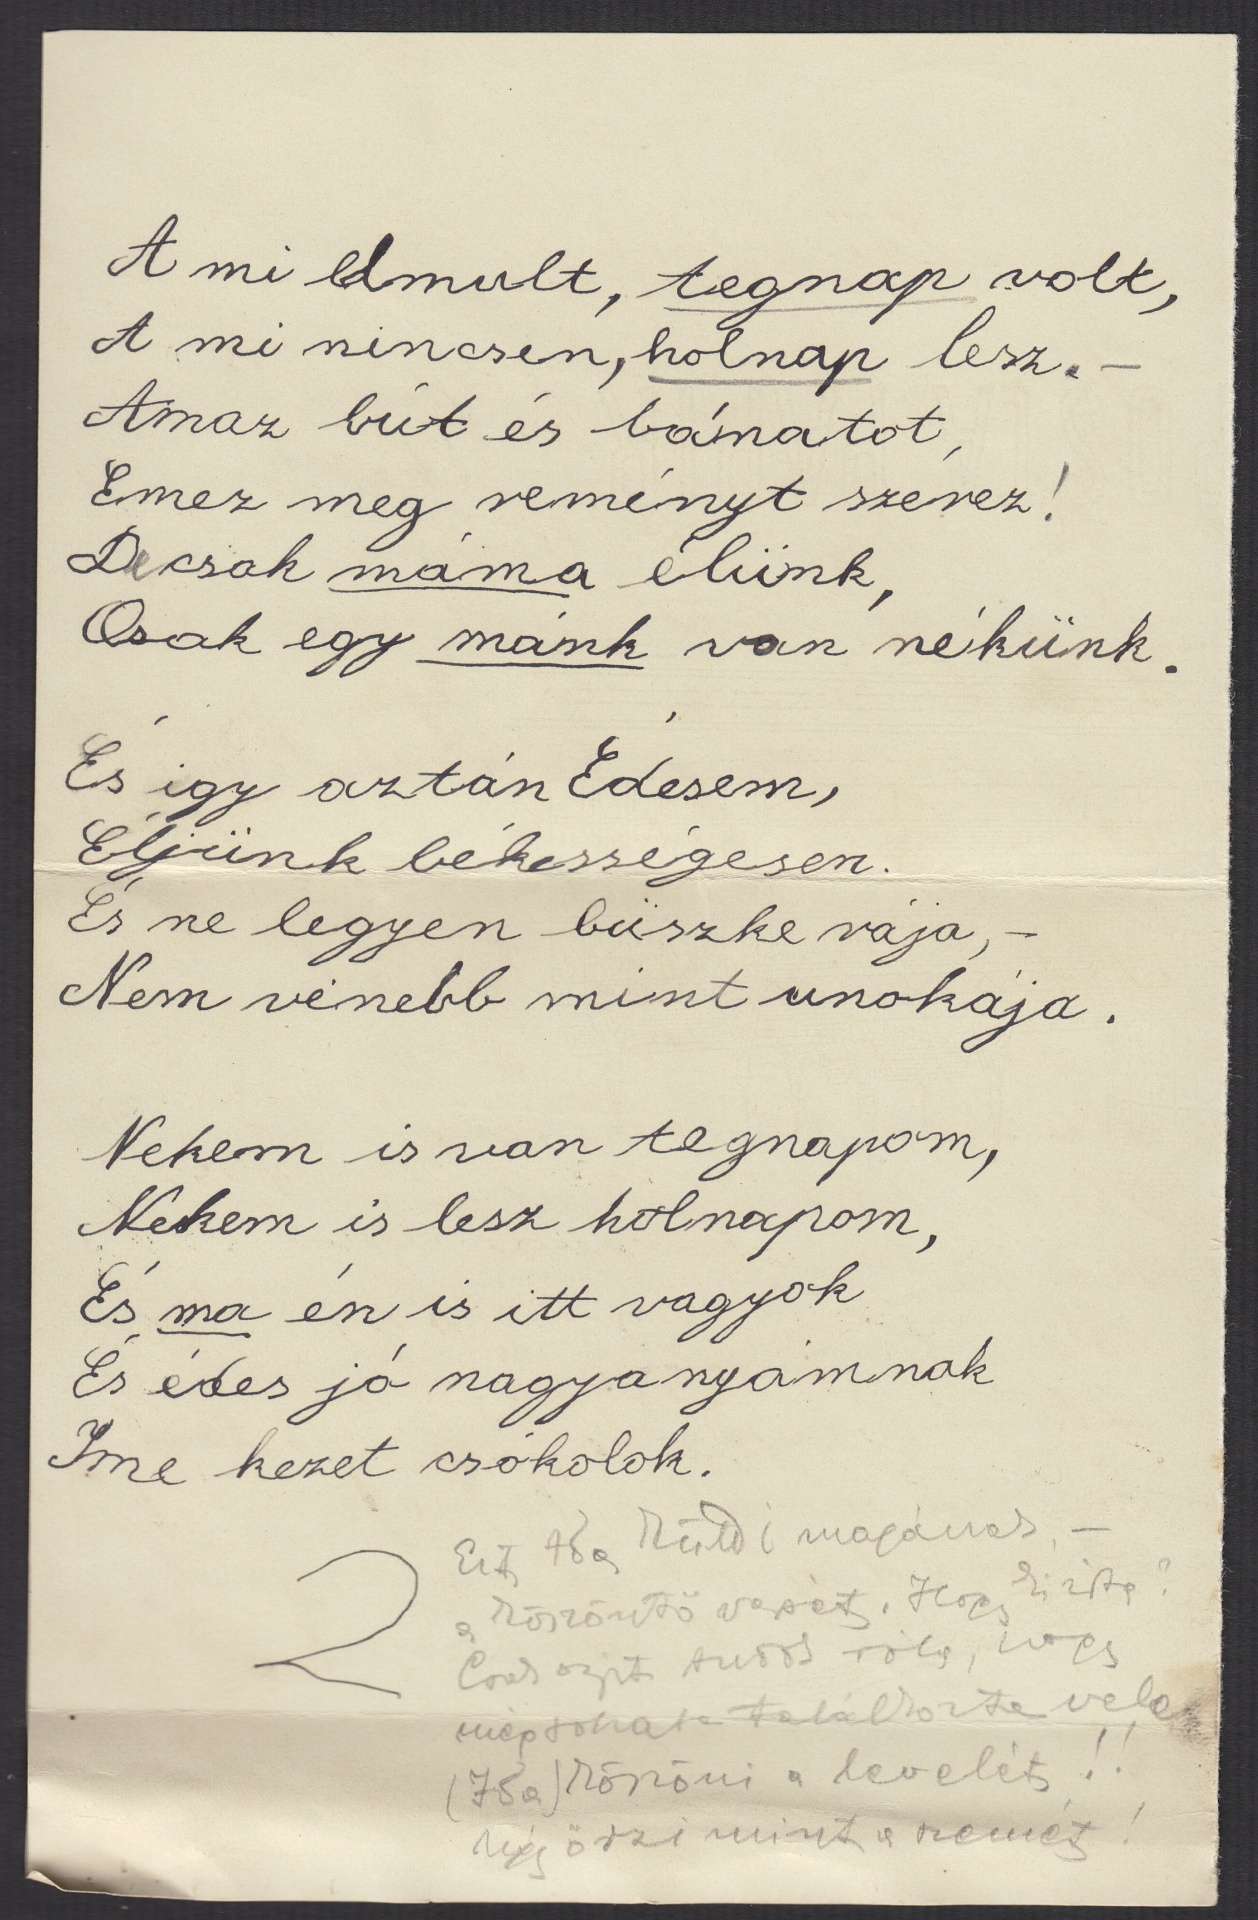 A mi elmult, tegnap volt,
A mi nincsen, holnap lesz. –
Amaz bút és bánatot,
Emez meg reményt szerez!
De csak máma élünk,
Csak egy mánk van nékünk.
És igy aztán Édesem,
Éljünk békességesen.
És ne legyen büszke rája, –
Nem vénebb mint unokája.
Nekem is van tegnapom,
Nekem is lesz holnapom,
És ma én is itt vagyok
És édes jó nagyanyámnak
Ime kezet csókolok.
Ezt Ida küldi magának, –
a köszöntő
Csak azt tudok róla, hogy
találkozta vele
(Ida) köszöni a levelét!!
Úgy őrzi mint a szemét!